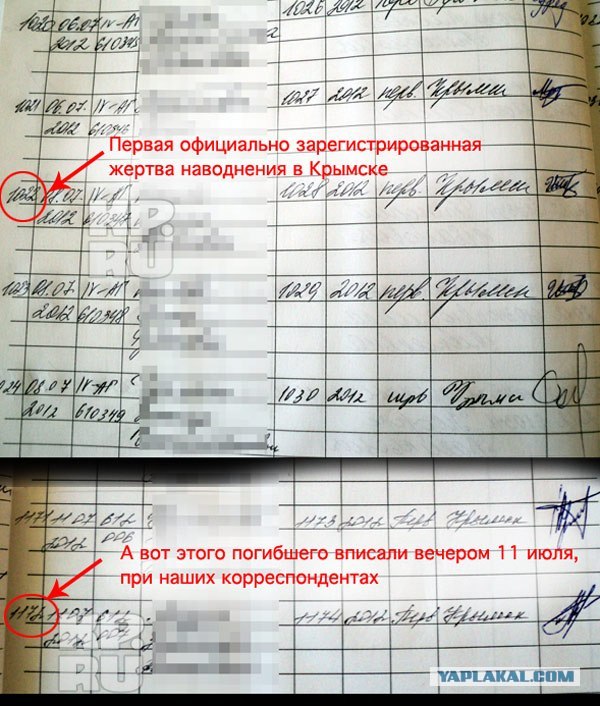 1020 06.07 IV-АГ 1026 2012
2012 610345
1021 06.07 IV-АГ 1027 2012 перв. Крымск
2012 610346
Первая официально зарегистрированная
жертва наводнения в Крымске
1022 08.07 IV-АГ 1028 2012 перв. Крымск
2012 610347
KP.
RU
1023 08.07 IV-АГ 1029 2012 перв. Крымск
2012 610348
1024 08.07 IV-АГ 1030 2012
2012 610349
1171 11 07 612 1173 2012 Перв Крымск
2012 006
А вот этого погибшего вписали вечером 11 июля,
при наших корреспондентах
1172 11 07 612 1174 2012 Перв Крымск
2012 007
KP.
RU
YAPLAKAL.COM